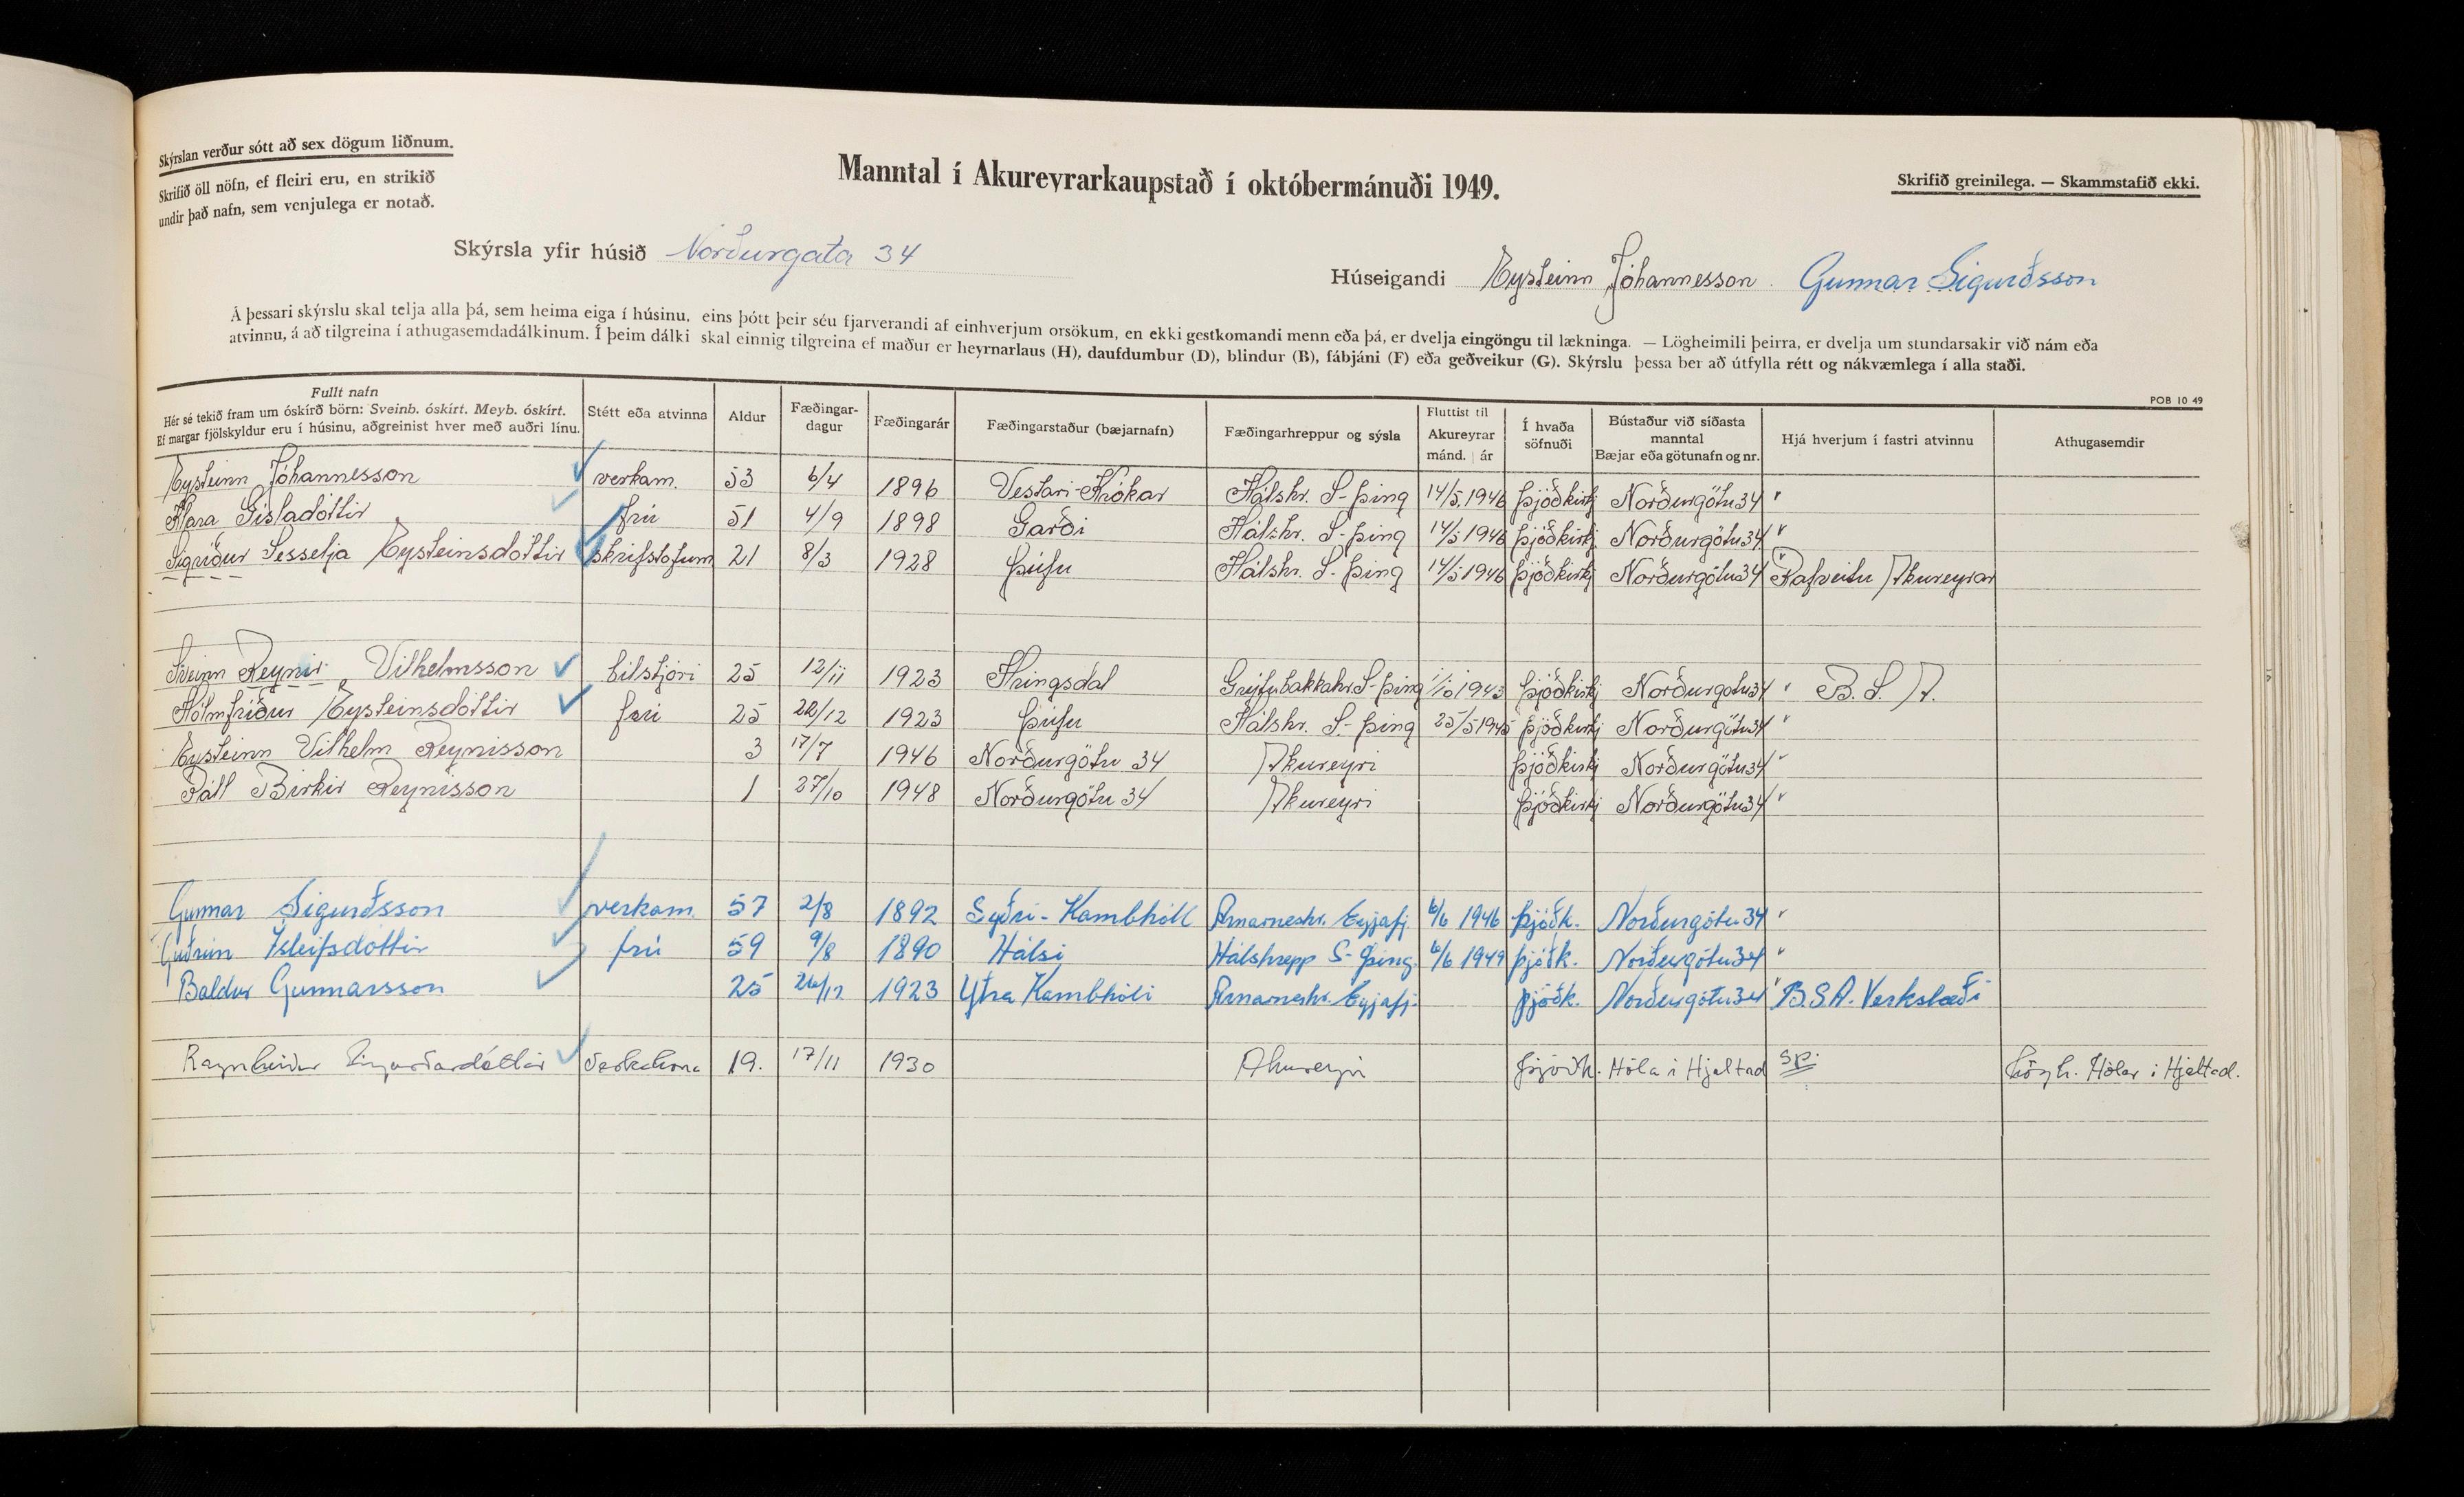 Skýrslan verður sótt að sex dögum liðnum.
Skrifið öll nöfn, ef fleiri eru, en strikið
undir það nafn, sem venjulega er notað.
Manntal í Akureyrarkaupstað í októbermánuði 1949.
Skrifið greinilega. — Skammstafið ekki.
Skýrsla yfir húsið Norðurgata 34
Húseigandi Eysteinn Jóhannesson. Gunnar Sigurðsson
Á þessari skýrslu skal telja alla þá, sem heima eiga í húsinu, eins þótt þeir séu fjarverandi af einhverjum orsökum, en ekki gestkomandi menn eða þá, er dvelja eingöngu til lækninga. — Lögheimili þeirra, er dvelja um stundarsakir við nám eða
atvinnu, á að tilgreina í athugasemdadálkinum. Í þeim dálki skal einnig tilgreina ef maður er heyrnarlaus (H), daufdumbur (D), blindur (B), fábjáni (F) eða geðveikur (G). Skýrslu þessa ber að útfylla rétt og nákvæmlega í alla staði.
POB 10 49
Fullt nafn
Hér sé tekið fram um óskírð börn: Sveinb. óskírt. Meyb. óskírt.
Ef margar fjölskyldur eru í húsinu, aðgreinist hver með auðri línu.
Stétt eða atvinna
Aldur
Fæðingar-
dagur
Fæðingarár
Fæðingarstaður (bæjarnafn)
Fæðingarhreppur og sýsla
Fluttist til
Akureyrar
mánd. ár
Í hvaða
söfnuði
Bústaður við síðasta
manntal
Bæjar eða götunafn og nr.
Hjá hverjum í fastri atvinnu
Athugasemdir
Eysteinn Jóhannesson verkam. 53 6/4 1896 Vestari-Krókar Hálshr. S-þing 14/5 1946 þjóðkirkj Norðurgötu 34 "
Klara Gísladóttir frú 51 4/9 1898 Garði Hálshr. S-þing 14/5 1946 þjóðkirkj Norðurgötu 34 "
Sigríður Sesselja Eysteinsdóttir skrifstofum 21 8/3 1928 Þúfu Hálshr. S-þing 14/5 1946 þjóðkirkj Norðurgötu 34 " Rafveitu Akureyrar
Sveinn Reynir Vilhelmsson bílstjóri 25 12/11 1923 Hringsdal Grýtubakkahr. S-þing 1/10 1943 þjóðkirkj Norðurgötu 34 " B. S. A.
Hólmfríður Eysteinsdóttir frú 25 22/12 1923 Þúfu Hálshr. S-þing 25/5 1945 þjóðkirkj Norðurgötu 34 "
Eysteinn Vilhelm Reynisson 3 17/7 1946 Norðurgötu 34 Akureyri þjóðkirkj Norðurgötu 34 "
Páll Birkir Reynisson 1 27/10 1948 Norðurgötu 34 Akureyri þjóðkirkj Norðurgötu 34 "
Gunnar Sigurðsson verkam. 57 2/8 1892 Syðri-Kambhóll Arnarneshr. Eyjafj. 6/6 1946 þjóðk. Norðurgötu 34 "
Guðrún Ísleifsdóttir frú 59 9/8 1890 Hálsi Hálshrepp S-þing. 6/6 1949 þjóðk. Norðurgötu 34 "
Baldur Gunnarsson 25 26/12 1923 Ytra Kambhóli Arnarneshr. Eyjafj. þjóðk. Norðurgötu 34 " B.S.A. Verkstæði
Ragnheiður Sigurðardóttir 19. 17/11 1930 Akureyri þjóðk. Hóla í Hjaltad sp. Lögh. Hólar í Hjaltad.